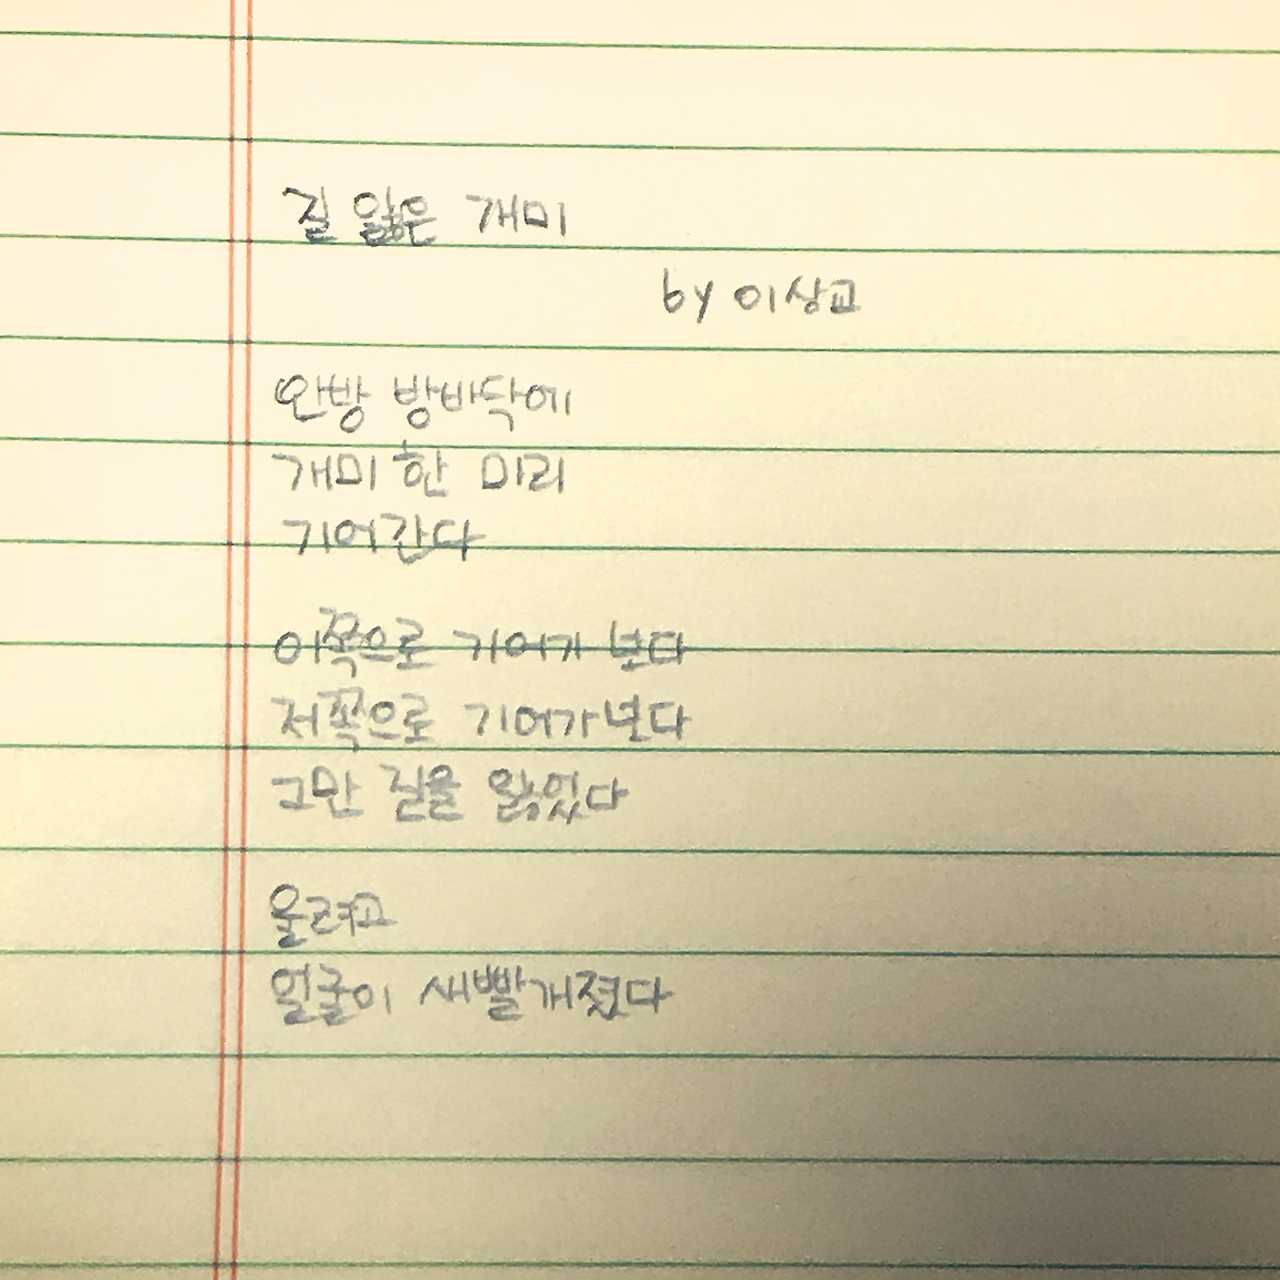 질 잃은 개미
by 이상교
안방 방바닥에
개미 한 미리
기어간다
이쪽으로 기어가 본다
저쪽으로 기어가 본다
그만 질을 잃었다
울려고
얼굴이 새빨개졌다